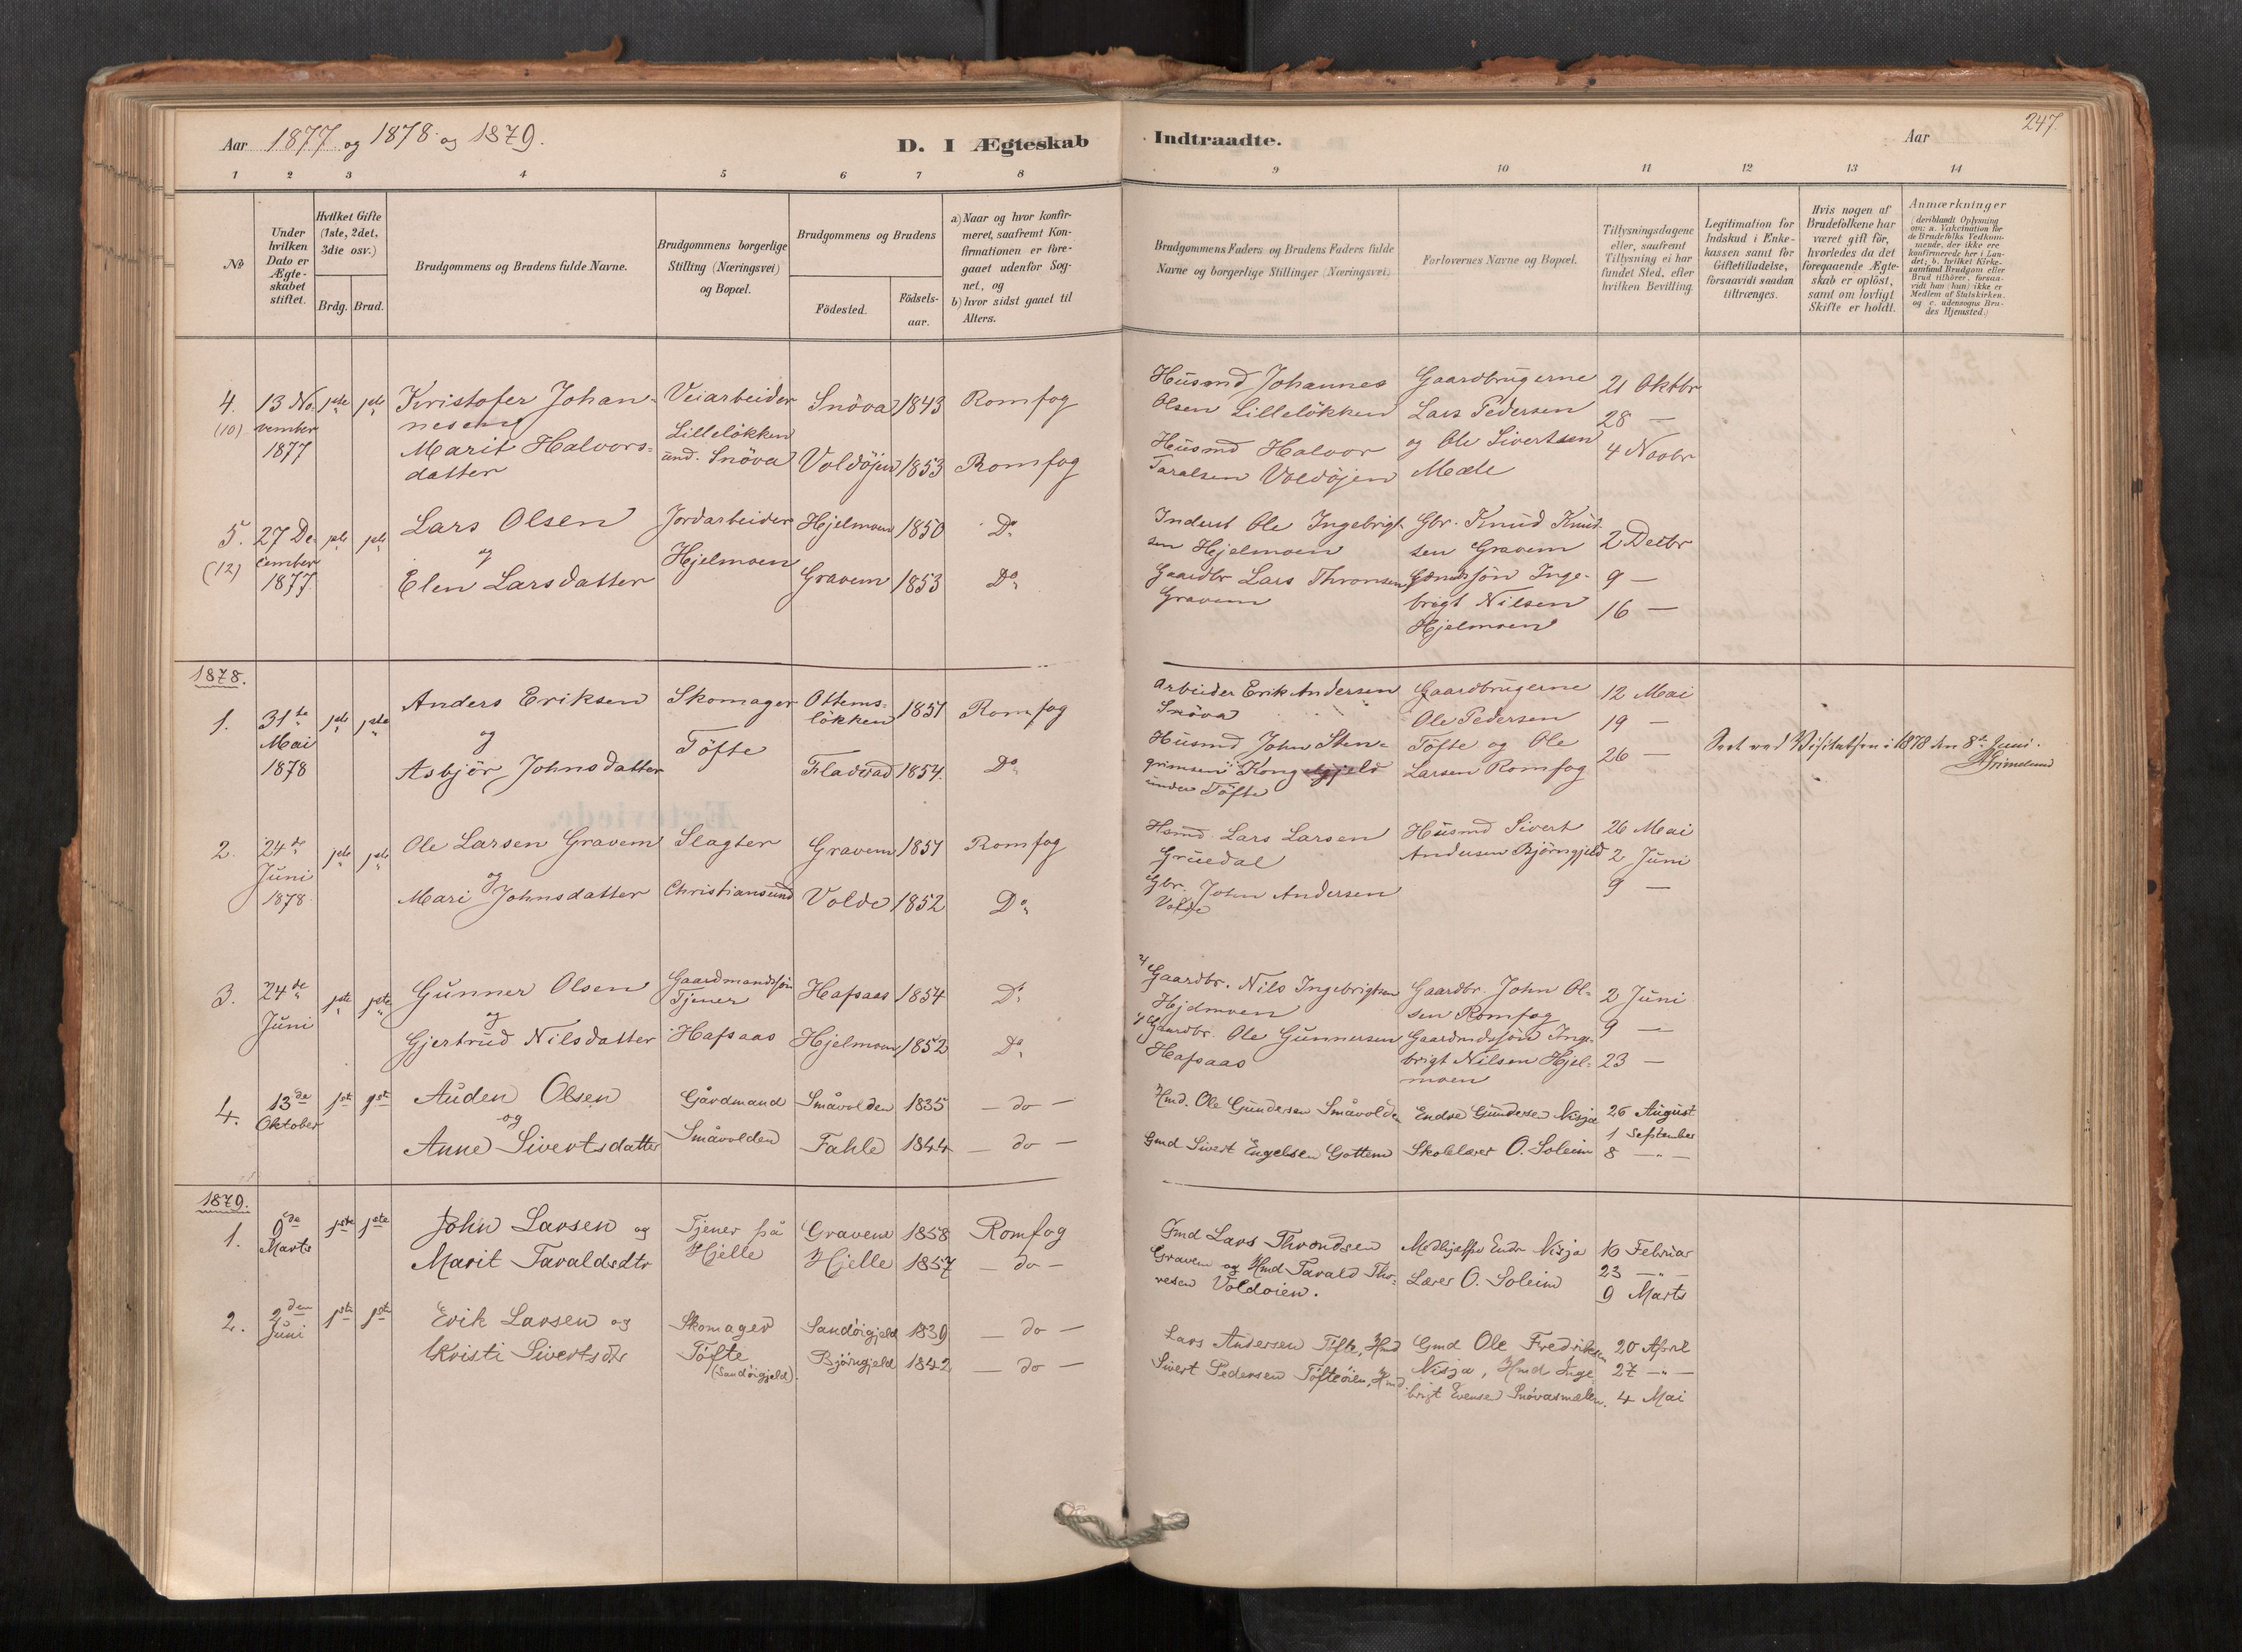 Aar 1877 og 1878 og 1879.
D. I Ægteskab
Indtraadte.
Aar
247.
1 2 3 4 5 6 7 8
9 10 11 12 13 14
No
Under hvilken Dato er Ægte-skabet stiftet.
Hvilket Gifte (1ste, 2det, 3die osv.)
Brdg. Brud.
Brudgommens og Brudens fulde Navne.
Brudgommens borgerlige Stilling (Næringsvei) og Bopæl.
Brudgommens og Brudens
Födested.
Födsels-aar.
a) Naar og hvor konfir-meret, saafremt Kon-firmationen er fore-gaaet udenfor Sog-net, og
b) hvor sidst gaaet til Alters.
Brudgommens Faders og Brudens Faders fulde Navne og borgerlige Stillinger (Næringsvei)
Forlovernes Navne og Bopæl.
Tillysningsdagene eller, saafremt Tillysning ei har fundet Sted, efter hvilken Bevilling.
Legitimation for Indskud i Enke-kassen samt for Giftetilladelse, forsaavidt saadan tiltrænges.
Hvis nogen af Brudefolkene har været gift för, hvorledes da det foregaaende Ægte-skab er oplöst, samt om lovligt Skifte er holdt.
Anmærkninger
(deriblandt Oplysning om: a. Vakcination for de Brudefolks Vedkom-mende, der ikke ere konfirmerede her i Lan-det; b. hvilket Kirke-samfund Brudgom eller Brud tilhörer, forsaa-vidt han (hun) ikke er Medlem af Statskirken, og c. udensogns Bru-des Hjemsted.)
4. 13 No- 1ste 1ste Kristofer Johan- Veiarbeider Snöva 1843 Romfog
(10) vember nesen og Lilleløkken
1877 Marit Halvors- und. Snöva Voldöjen 1853 Romfog
datter
Husmd Johannes Gaardbrugerne 21 Oktbr
Olsen Lilleløkken Lars Pedersen 28 —
Husmd Halvor og Ole Sivertsen 4 Novbr
Taralsen Voldöjen Mæle
5. 27 De- 1ste 1ste Lars Olsen Jordarbeider Hjelmoen 1850 Do
(12) cember og Hjelmoen
1877. Elen Larsdatter Gravem 1853 Do
Inderst Ole Ingebrigt- Gbr. Knud Knud-
sen Hjelmoen sen Gravem 2 Decbr
Gaardbr Lars Thronsen Gmdssön Inge- 9 —
Gravem brigt Nilsen 16 —
Hjelmoen
1878.
1. 31te 1ste 1ste Anders Eriksen Skomager Ottems- 1851 Romfog
Mai og Töfte løkken
1878 Asbjör Johnsdatter Fladvad 1854. Do
Arbeider Erik Andersen Gaardbrugerne 12 Mai
Snöva Ole Pedersen 19 —
Husmd John Sten- Töfte og Ole 26 —
grimsen Kong Larsen Romfog
under Töfte
Seet ved Visitatsen i 1878 den 8de Juni.
Grimelund
2. 24de 1ste 1ste Ole Larsen Gravem Slagter Gravem 1851 Romfog
Juni og
1878. Mari Johnsdatter Christiansund Volde 1852 Do
Hsmd. Lars Larsen Husmd Sivert 26 Mai
Gruedal Andersen Björngjeld 2 Juni
Gbr. John Andersen 9 —
Volde
3. 24de 1ste 1ste Gunner Olsen Gaardmandssön Hafsaas 1854 Do
Juni og Tjener
Gjertrud Nilsdatter Hafsaas Hjelmoen 1852 Do
2) Gaardbr. Nils Ingebrigtsen Gaardbr. John Ol- 2 Juni
Hjelmoen sen Romfog 9 —
1) Gaardbr. Ole Gunnersen Gaardmdssön Inge-
Hafsaas brigt Nilsen Hjel- 23 —
moen
4. 13de 1ste 1ste Auden Olsen Gårdmand Småvolden 1835 — do —
Oktober og
Anne Sivertsdatter Småvolden Fahle 1844 — do —
Hmd. Ole Gundersen Småvolden Endre Gundersen Nisja 26 August
1 September
Gmd Sivert Engelsen Gottem Skolelærer O. Soleim 8 — " —
1879.
1. 9de 1ste 1ste John Larsen og Tjener på Gravem 1858 Romfog
Marts Marit Taraldsdtr Hjelle Hjelle 1857 — do —
Gmd Lars Throndsen Medhjelper Endr Nisja 16 Februar
Gravem og Hmd Tarald Tho- Lærer O. Soleim 23 — " —
resen Voldøien. 9 Marts
2. 2den 1ste 1ste Erik Larsen og Skomager Sandöigjeld 1839 — do —
Juni Kristi Sivertsdtr Töfte Björngjeld 1842 — do —
(Sandöigjeld).
Lars Andersen Töfte, Hmd Gmd Ole Fredriksen 20 April
Sivert Pedersen Töfteöien, Hmd Nisja, Hmd Inge- 27 — " —
brigt Evensen Snövasmælen. 4 Mai